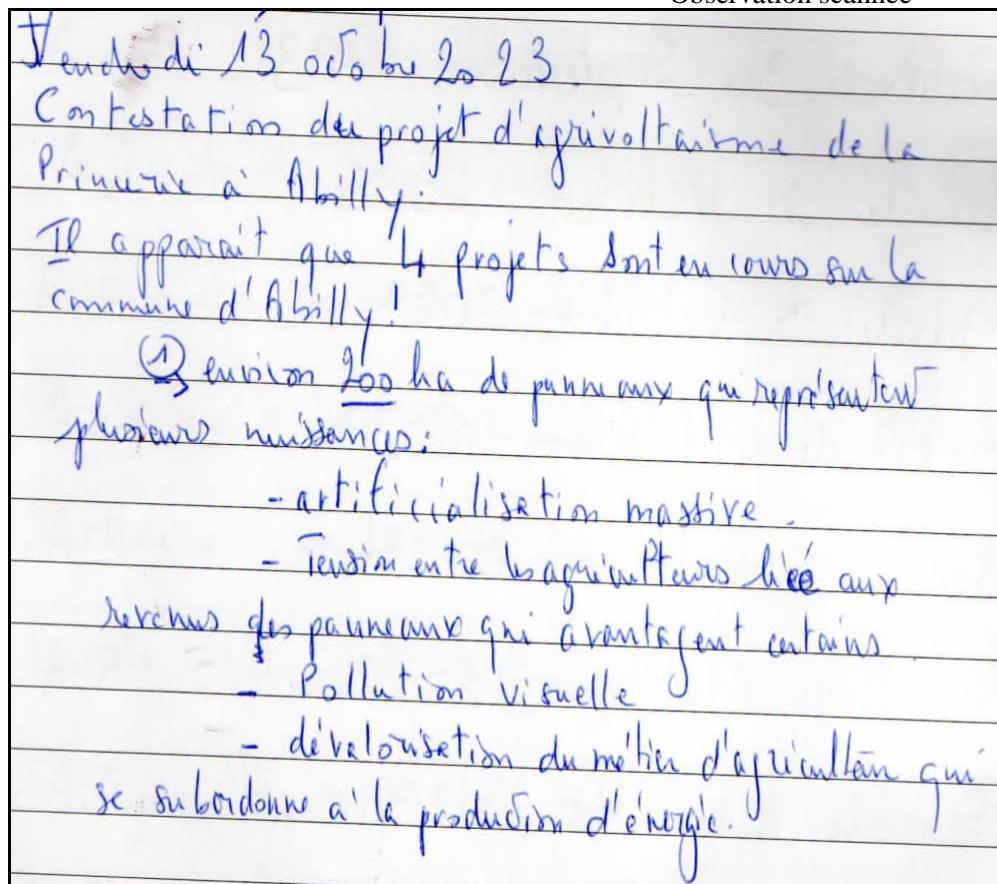 Observation scannée
Vendredi 13 octobre 2023
Contestation du projet d'agrivoltaisme de la
Princerie à Abilly.
Il apparait que 4 projets sont en cours sur la
commune d'Abilly !
① environ 200 ha de panneaux qui représentent
plusieurs nuissances :
- artificialisation massive.
- Tension entre les agriculteurs liée aux
revenus des panneaux qui avantagent certains.
- Pollution visuelle
- dévalorisation du métier d'agriculteur qui
se subordonne à la production d'énergie.